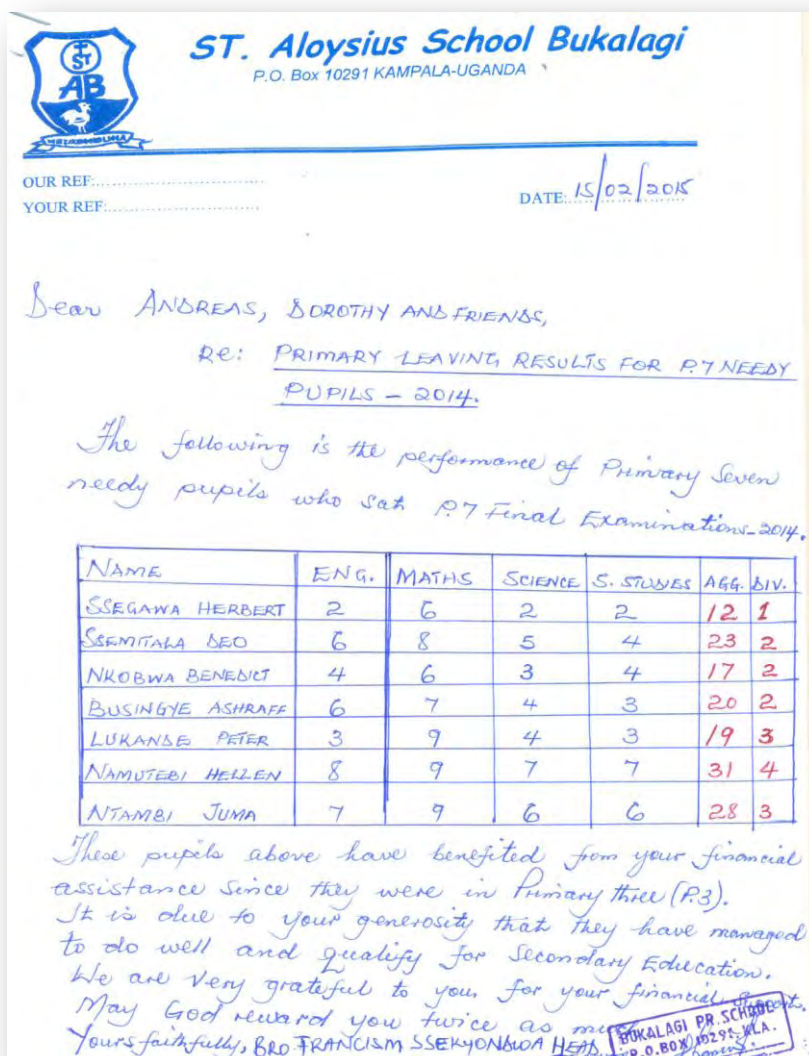 ST
AB
ST. Aloysius School Bukalagi
P.O. Box 10291 KAMPALA-UGANDA
OUR REF:................................
YOUR REF:..............................
DATE: 15/02/2015
Dear ANDREAS, DOROTHY AND FRIENDS,
Re: PRIMARY LEAVING RESULTS FOR P.7 NEEDY
PUPILS - 2014.
The following is the performance of Primary Seven
needy pupils who sat P.7 Final Examinations-2014.
NAME ENG. MATHS SCIENCE S. STUDIES AGG. DIV.
SSEGAWA HERBERT 2 6 2 2 12 1
SSEMITALA DEO 6 8 5 4 23 2
NKOBWA BENEDICT 4 6 3 4 17 2
BUSINGYE ASHRAFF 6 7 4 3 20 2
LUKANDE PETER 3 9 4 3 19 3
NAMUTEBI HELLEN 8 9 7 7 31 4
NTAMBI JUMA 7 9 6 6 28 3
These pupils above have benefited from your financial
assistance since they were in Primary three (P.3).
It is due to your generosity that they have managed
to do well and qualify for Secondary Education.
We are very grateful to you for your financial
May God reward you twice as
Yours faithfully, BRO. FRANCIS M SSEKYONDWA HEAD
BUKALAGI PR. SCHOOL
P.O. BOX 10291 KLA.